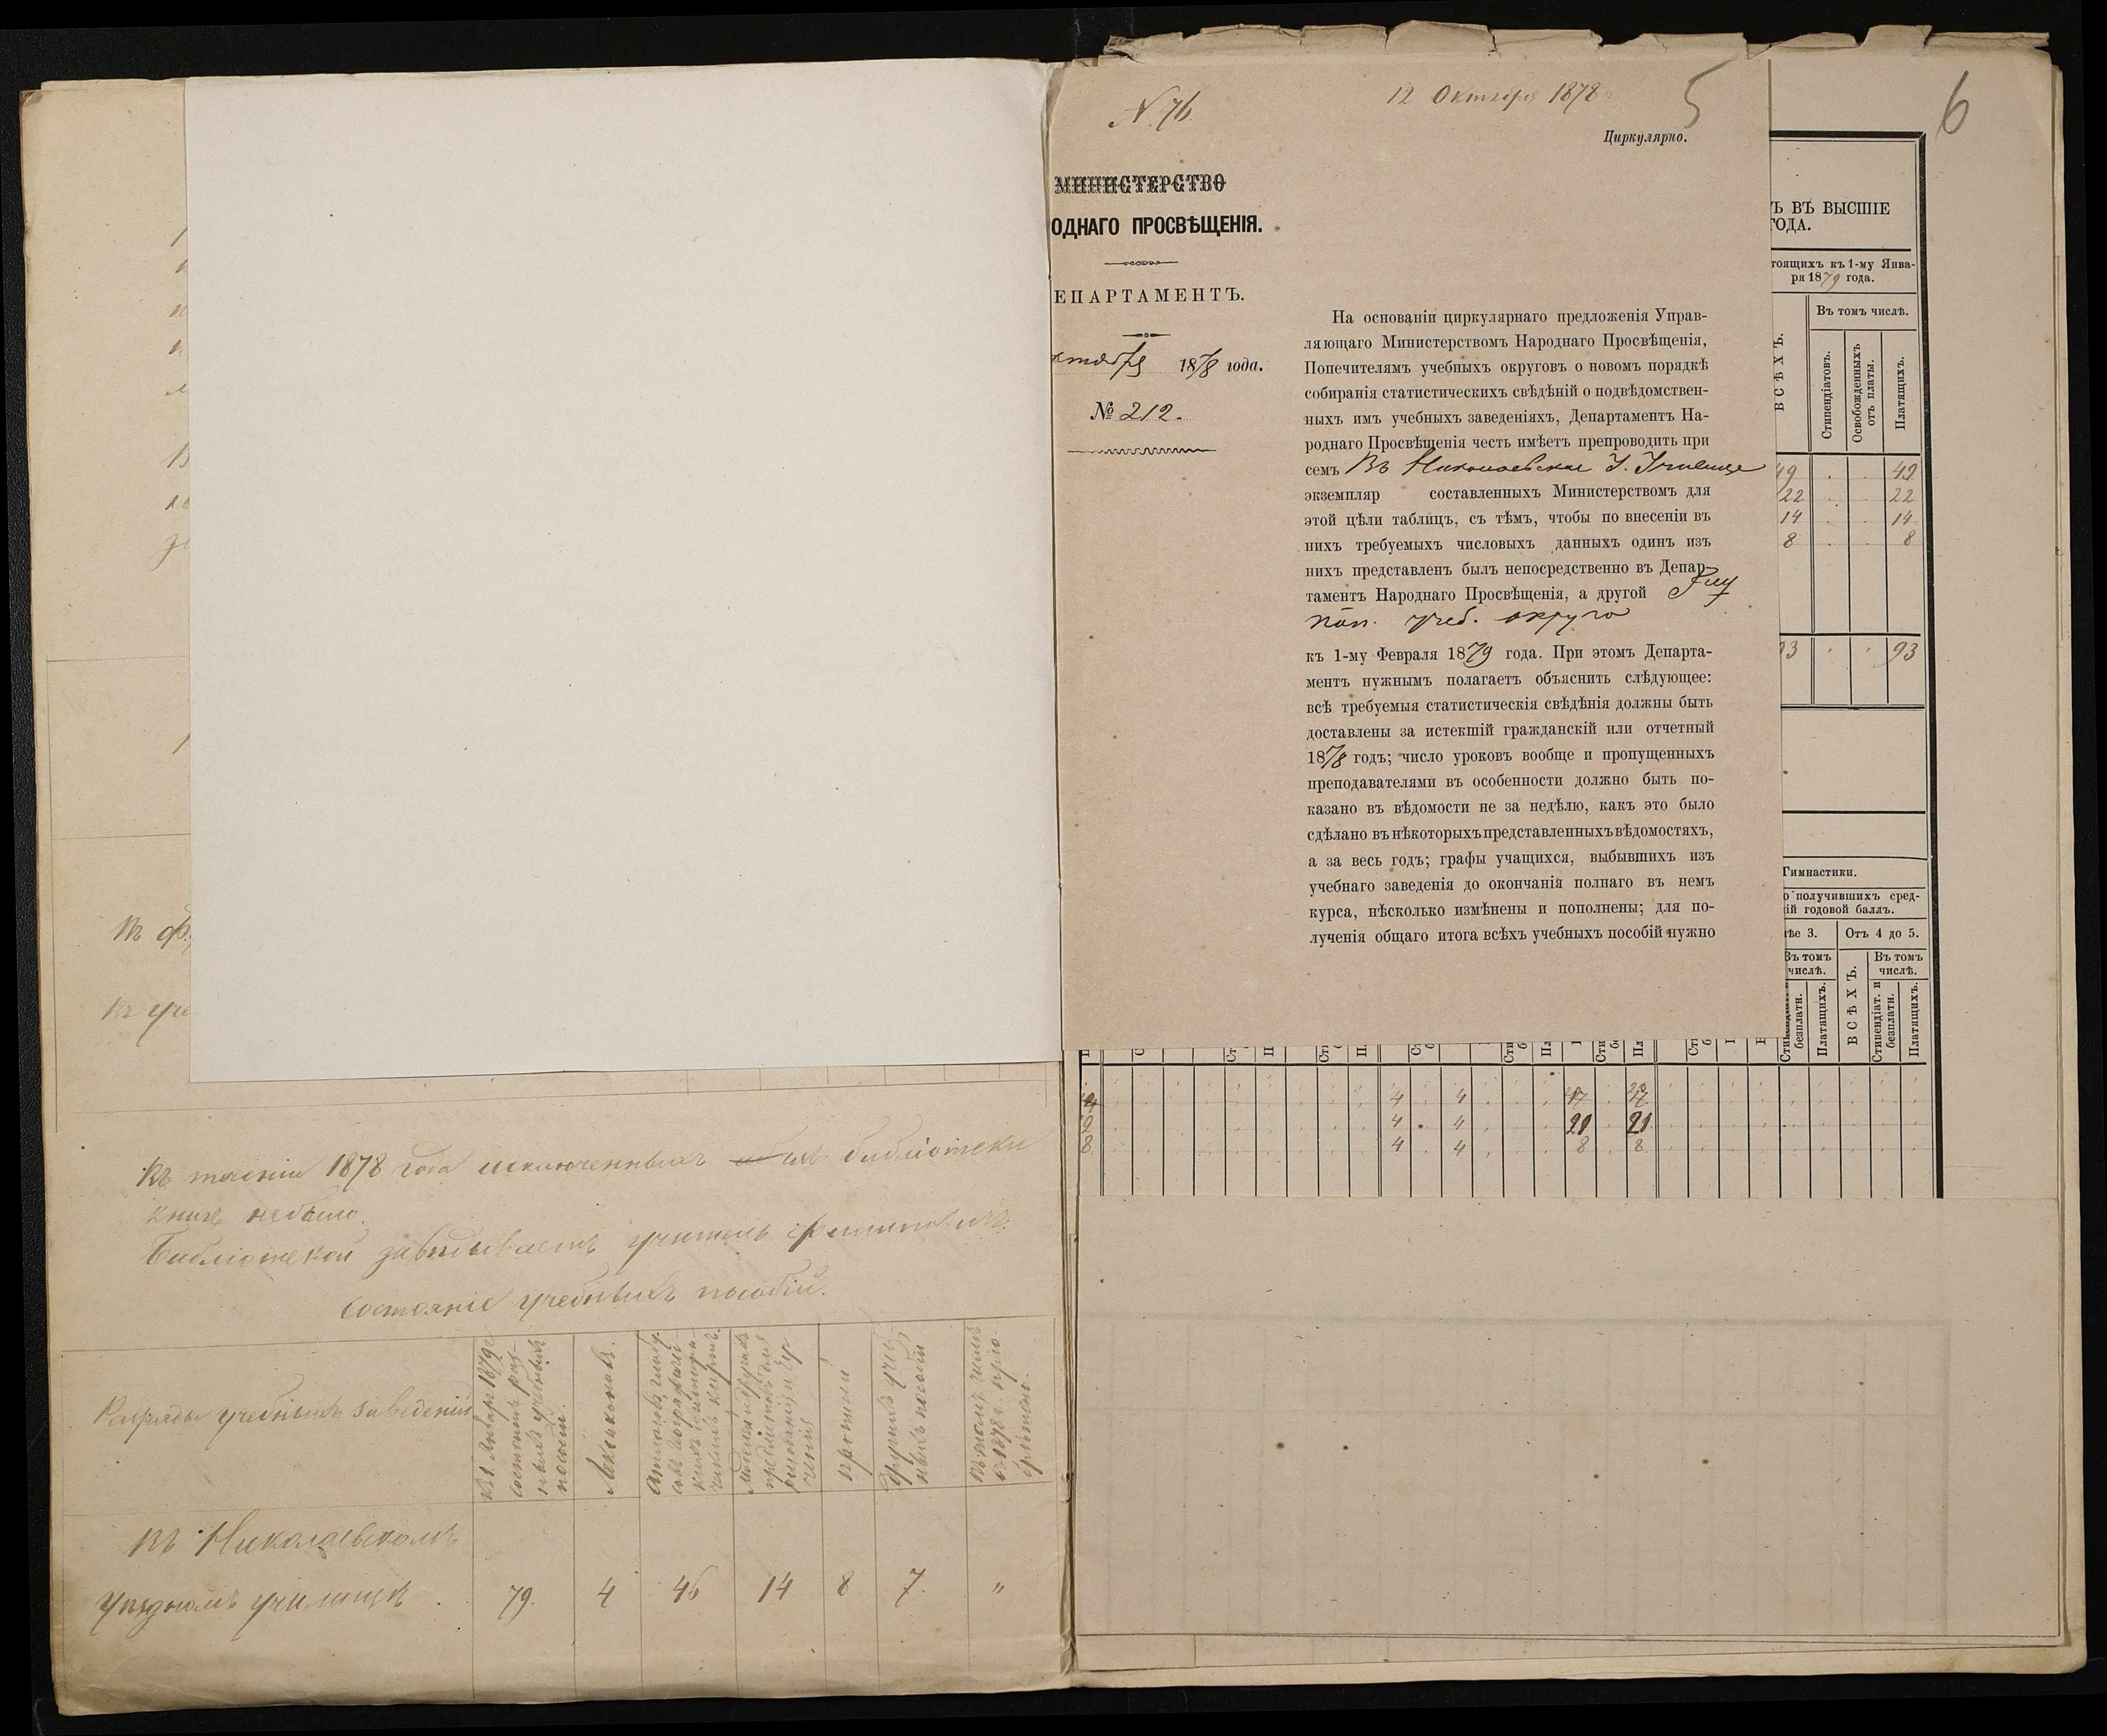 Въ теченіи 1878 года исключенныхъ изъ библіотеки
книгъ небыло.
Библіотекой завѣдываетъ учитель
Состояніе учебныхъ пособій.
Разряды учебныхъ заведеній
Къ 1 Января 1879 г.
состоитъ раз-
ныхъ учебныхъ
пособій.
Лексиконовъ.
Атласовъ, глобу-
совъ
картъ.
рисованія и чер-
ченія
прописи
Другихъ учеб-
ныхъ пособій
Въ томъ числѣ
въ 1878 г. прiо-
брѣтено.
Въ Николаевскомъ
уѣздномъ училищѣ
79.
4
46
14
8
7.
"
Къ уче
N. 76.
12 Октября 1878
5
Циркулярно.
МИНИСТЕРСТВО
ОДНАГО ПРОСВѢЩЕНІЯ.
ЕПАРТАМЕНТЪ.
ктября 1878 года.
№ 212.
На основаніи циркулярнаго предложенія Управ-
ляющаго Министерствомъ Народнаго Просвѣщенія,
Попечителямъ учебныхъ округовъ о новомъ порядкѣ
собиранія статистическихъ свѣдѣній о подвѣдомствен-
ныхъ имъ учебныхъ заведеніяхъ, Департаментъ На-
роднаго Просвѣщенія честь имѣетъ препроводить при
семъ Въ Николаевское У. Училище
экземпляр составленныхъ Министерствомъ для
этой цѣли таблицъ, съ тѣмъ, чтобы по внесеніи въ
нихъ требуемыхъ числовыхъ данныхъ одинъ изъ
нихъ представленъ былъ непосредственно въ Депар-
таментъ Народнаго Просвѣщенія, а другой
поп. учеб. округа
къ 1-му Февраля 1879 года. При этомъ Департа-
ментъ нужнымъ полагаетъ объяснить слѣдующее:
всѣ требуемыя статистическія свѣдѣнія должны быть
доставлены за истекшій гражданскій или отчетный
1878 годъ; число уроковъ вообще и пропущенныхъ
преподавателями въ особенности должно быть по-
казано въ вѣдомости не за недѣлю, какъ это было
сдѣлано въ нѣкоторыхъ представленныхъ вѣдомостяхъ,
а за весь годъ; графы учащихся, выбывшихъ изъ
учебнаго заведенія до окончанія полнаго въ немъ
курса, нѣсколько измѣнены и пополнены; для по-
лученія общаго итога всѣхъ учебныхъ пособій нужно
6
Ъ ВЪ ВЫСШІЕ
ГОДА.
тоящихъ къ 1-му Янва-
ря 1879 года.
Въ томъ числѣ.
ВСѢХЪ.
Стипендіатовъ.
Освобожденныхъ
отъ платы.
Платящихъ.
49 . . 49
22 . . 22
14 . . 14
8 . . 8
93 . . 93
Гимнастики.
о получивших сред-
ій годовой баллъ.
ѣе 3.
Отъ 4 до 5.
Въ томъ
числѣ.
Въ томъ
числѣ.
безплатн.
Платящихъ.
ВСѢХЪ.
Стипендіат. и
безплатн.
Платящихъ.
4 4
4 4 21 21
8 4 4 8 8